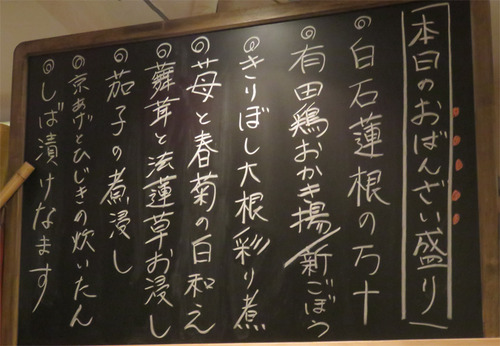 本日のおばんざい盛り
◎白石蓮根の万十
◎有田鶏おかき揚/新ごぼう
◎きりぼし大根彩り煮
◎苺と春菊の白和え
◎舞茸と法蓮草お浸し
◎茄子の煮浸し
◎京あげとひじきの炊いたん
◎しば漬けなます